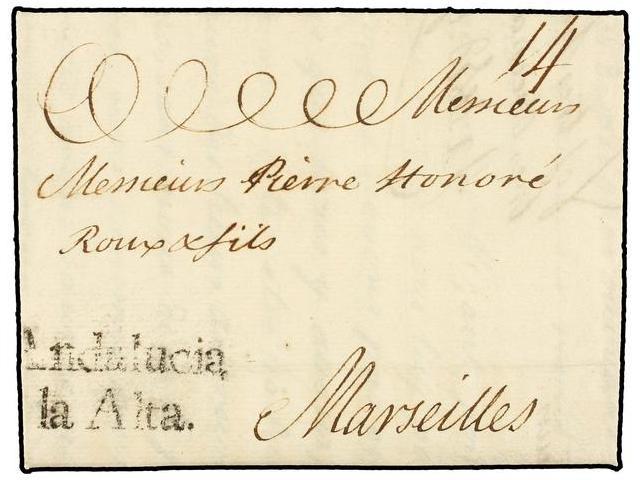 14
Messieurs
Messieurs Pierre Honoré
Roux & fils
Andalucia
la Alta.
Marseilles